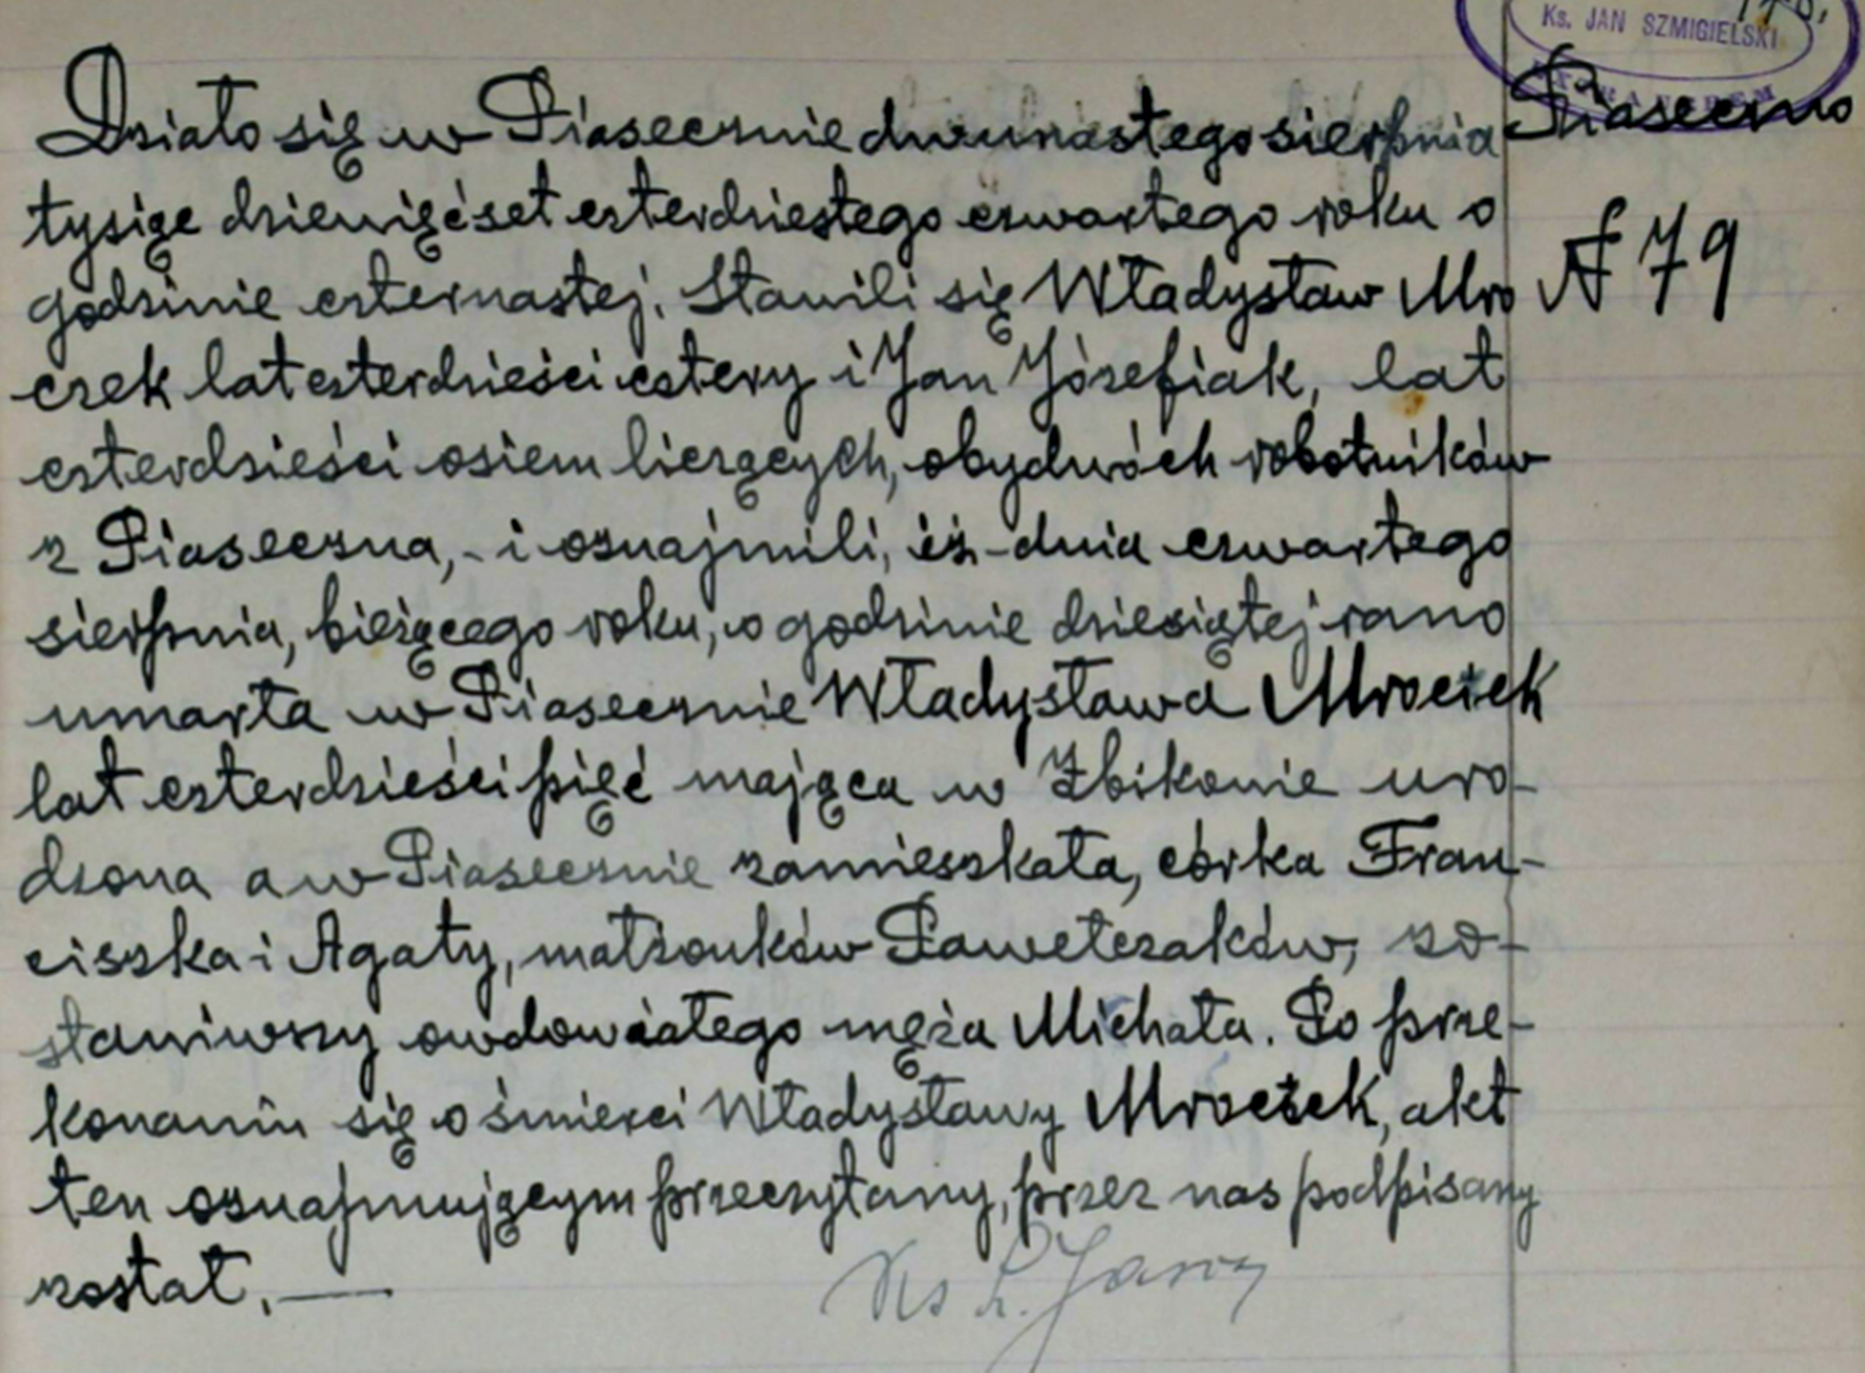 Ks. JAN SZMIGIELSKI
Działo się w Piasecznie dwunastego sierpnia
Piaseczno
tysiąc dziewięćset czterdziestego czwartego roku o
godzinie czternastej. Stawili się Władysław Mro
№ 79
czek lat czterdzieści cztery i Jan Józefiak, lat
czterdzieści osiem liczących, obydwóch robotników
z Piaseczna, - i oznajmili, iż - dnia czwartego
sierpnia, bieżącego roku, o godzinie dziesiątej rano
umarła w Piasecznie Władysława Mroczek
lat czterdzieści pięć mająca w Żbikowie uro-
dzona a w Piasecznie zamieszkała, córka Fran-
ciszka i Agaty, małżonków Pawełczaków, zo-
stawiwszy owdowiałego męża Michała. Po prze-
konaniu się o śmierci Władysławy Mroczek, akt
ten oznajmującym przeczytany, przez nas podpisany
został. —
Ks